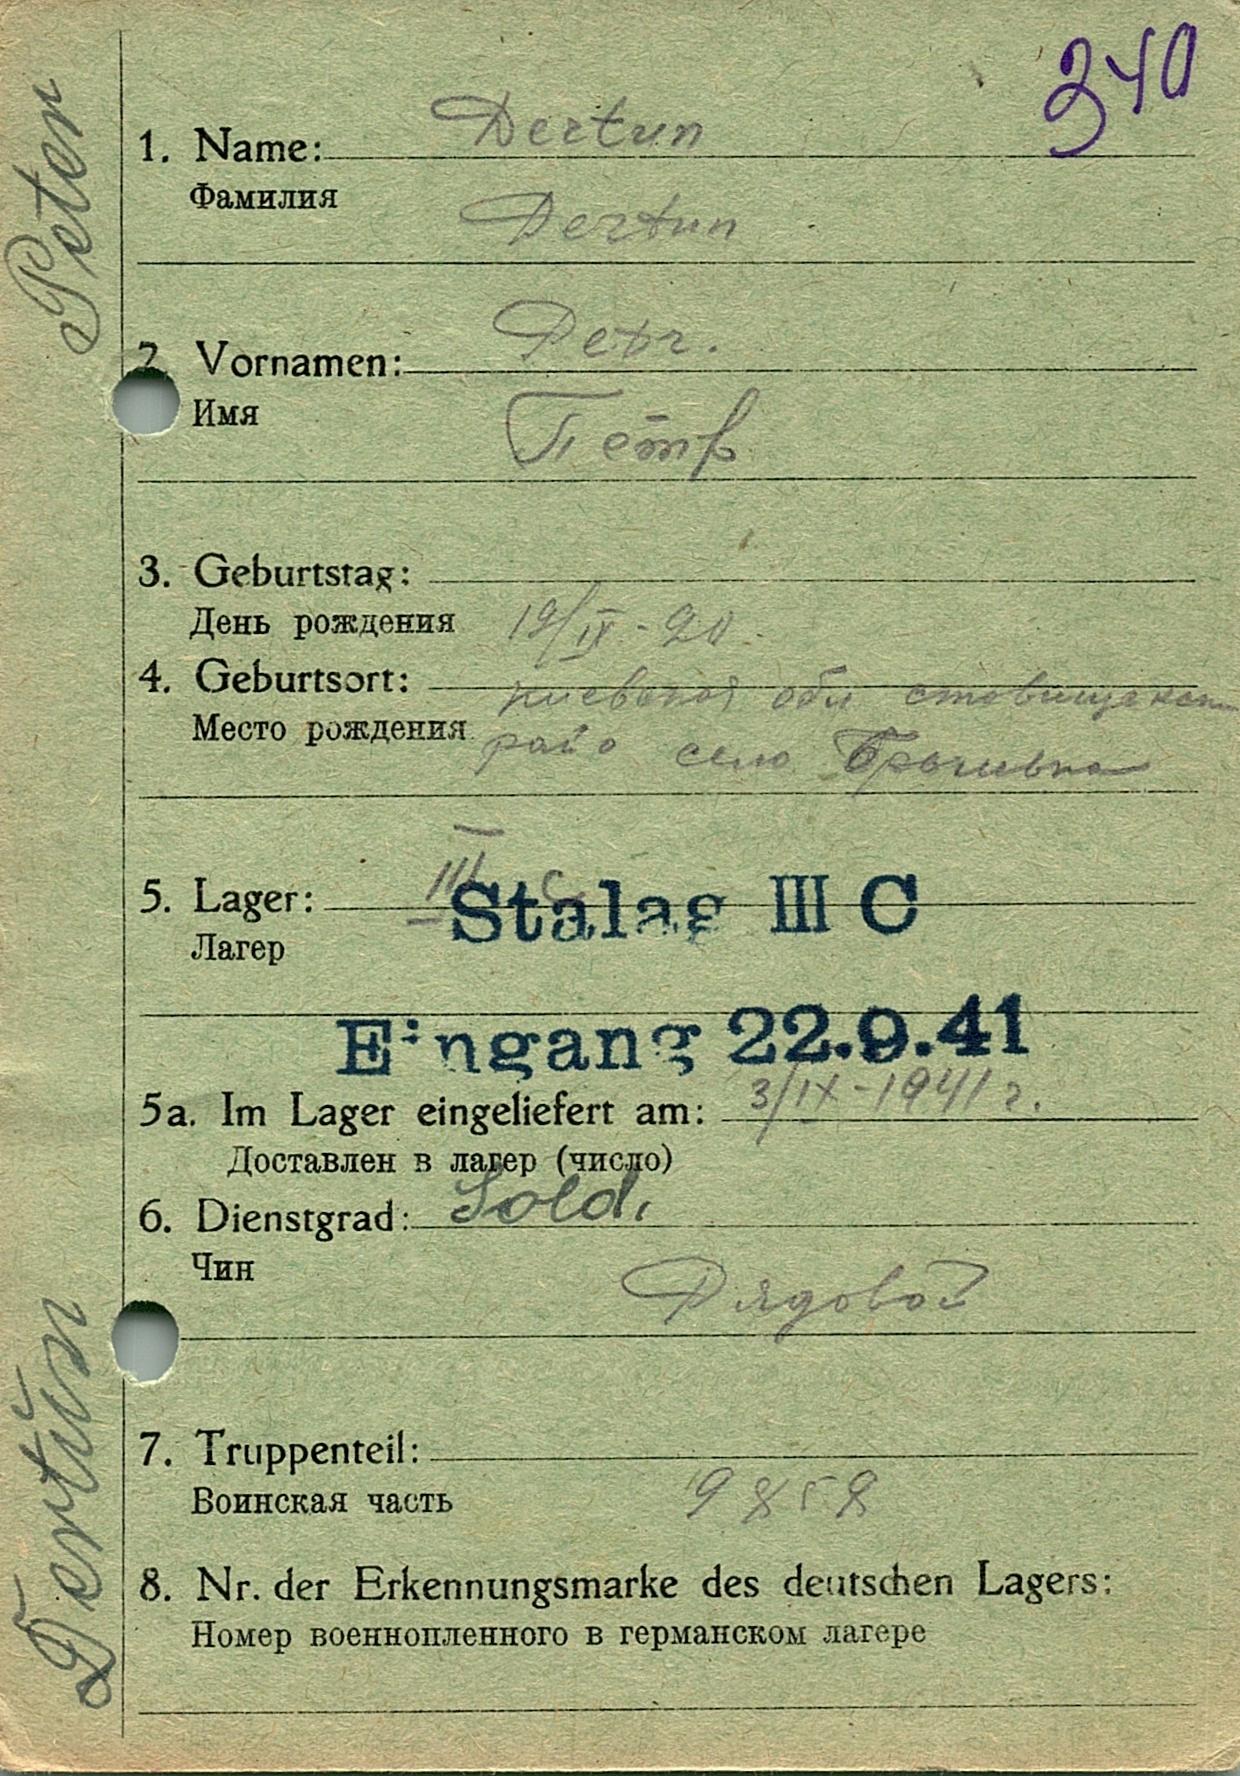 340
Peter
Dertun
1. Name: Dertun
Фамилия
Dertun
2. Vornamen: Petr.
Имя
Пётр
3. Geburtstag:
День рождения 19/IX - 20.
4. Geburtsort: киевской обл ставищанск
Место рождения райо село
5. Lager: III C.
Stalag III C
Лагер
Eingang 22.9.41
5a. Im Lager eingeliefert am: 3/IX-1941 г.
Доставлен в лагер (число)
6. Dienstgrad: Sold.
Чин
Рядовой
7. Truppenteil:
Воинская часть 9858
8. Nr. der Erkennungsmarke des deutschen Lagers:
Номер военнопленного в германском лагере